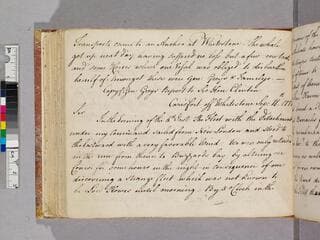 Transports came to an Anchor at Whitestone. The whole
got up next day having suffered no loss but a few
and some Horses which our Vessel was obliged to
herself of amongst these were Gen Greys &
Copy of Gen Greys Report to Sir Hen Clinton
Carisfort off Whitestone Sep. 18. 177
Sir
In the evening of the 4th Inst. the Fleet with the Detachment
under my Command sailed from New London and stood to
the Eastward with a very favorable Wind. We were only
in the run from thence to Buzzards bay by altering our
Course for some hours in the night in consequence of our
discovering a strange Fleet which was not known to
be Lord Howes until morning. By 5 oClock in the